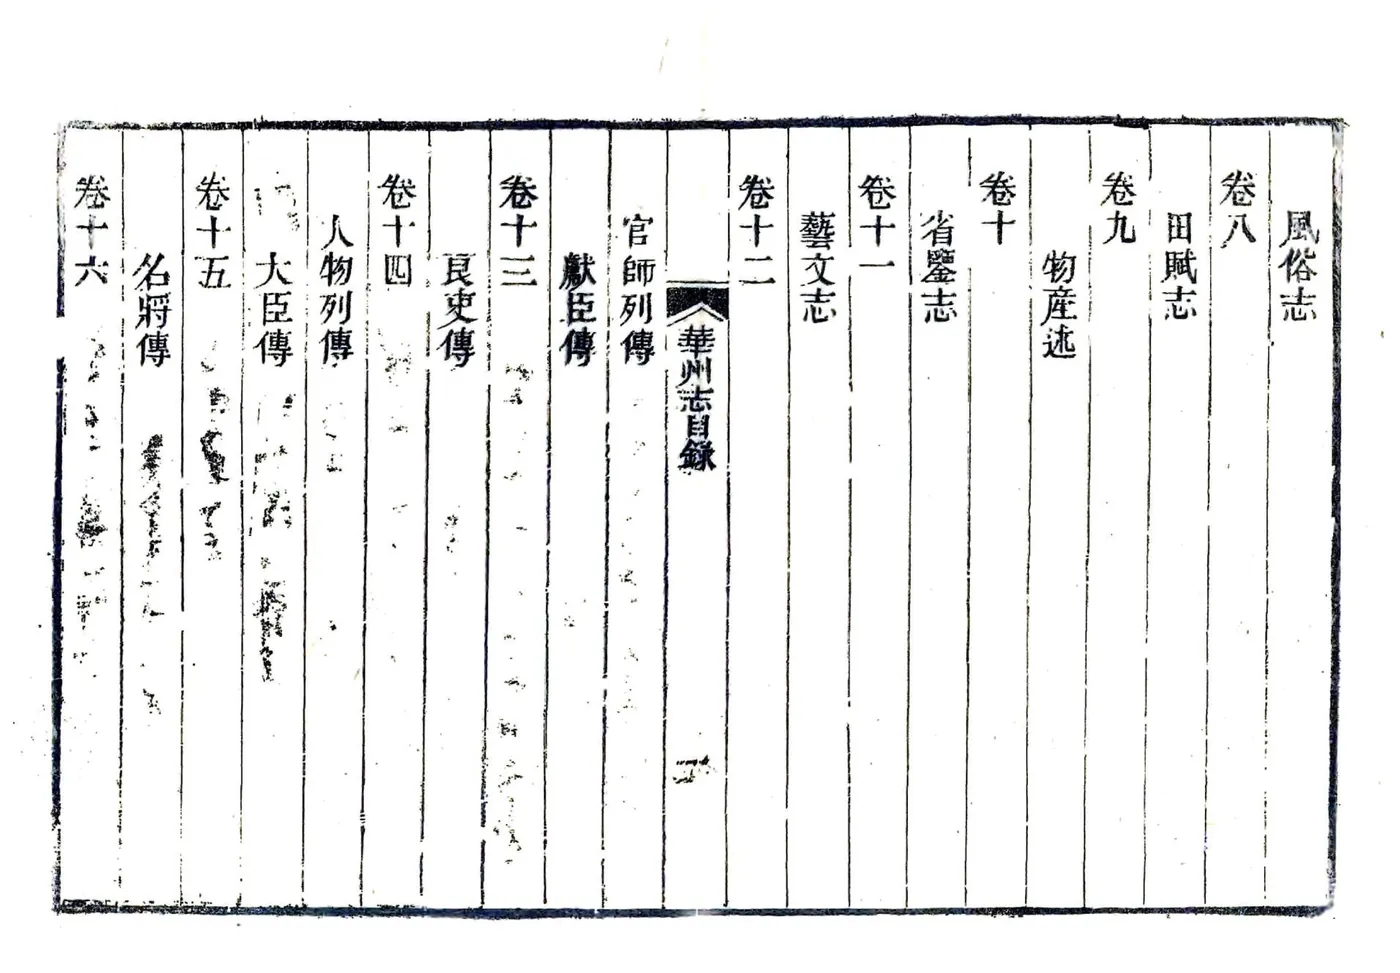 風俗志
卷八
田賦志
卷九
物産述
卷十
省鑒志
卷十一
藝文志
卷十二
華州志目錄
官師列傳
獻臣傳
卷十三
良吏傳
卷十四
人物列傳
大臣傳
卷十五
名將傳
卷十六